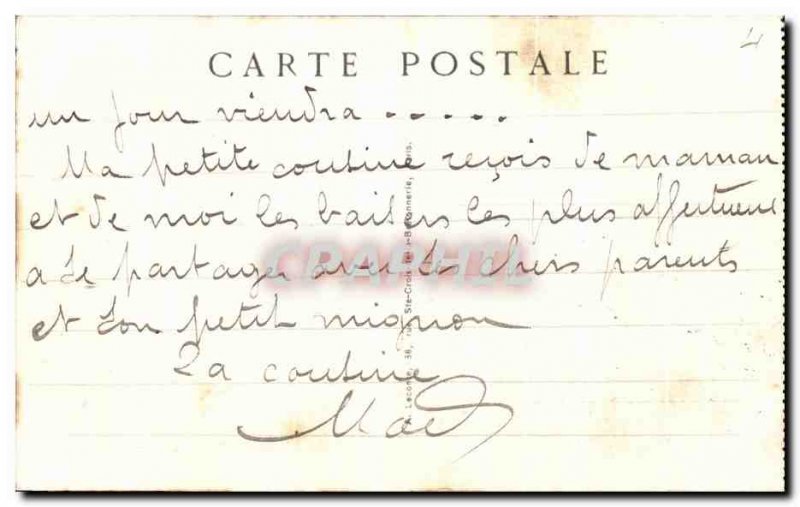 4
CARTE POSTALE
un jour viendra . . . . .
Ma petite cousine reçois de maman
et de moi les baisers les plus affectueux
a se partager avec tes chers parents
et ton petit mignon
La cousine
A. Leconte, 38, rue Ste-Croix-de-la-Bretonnerie, Paris.
CPAPHIL